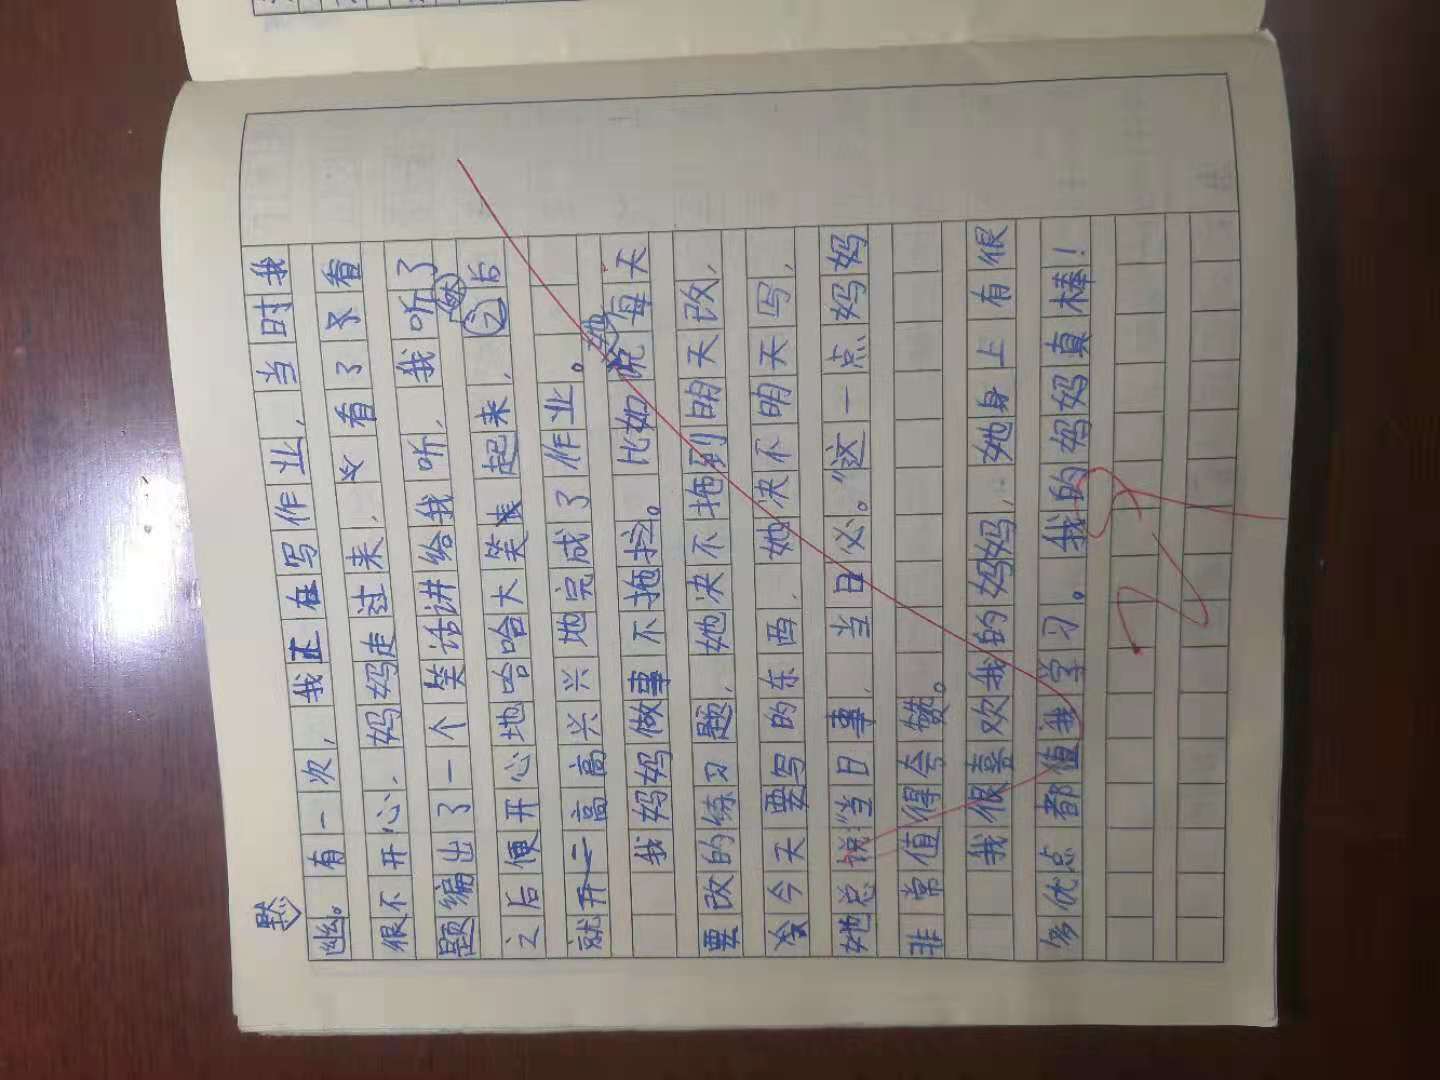 幽默。有一次，我正在写作业，当时我
很不开心，妈妈走过来，看了又看
题编出了一个笑话讲给我听，我听了
之后便开心地哈哈大笑起来，之后
就高高兴兴地完成了作业。
我妈妈做事不拖拉。比如说她每天
要改的练习题，她决不拖到明天改，
今天要写的东西，她决不明天写，
她总说“当日事，当日必。”这一点妈妈
非常值得夸赞。
我很喜欢我的妈妈，她身上有很
多优点都值我学习。我的妈妈真棒！